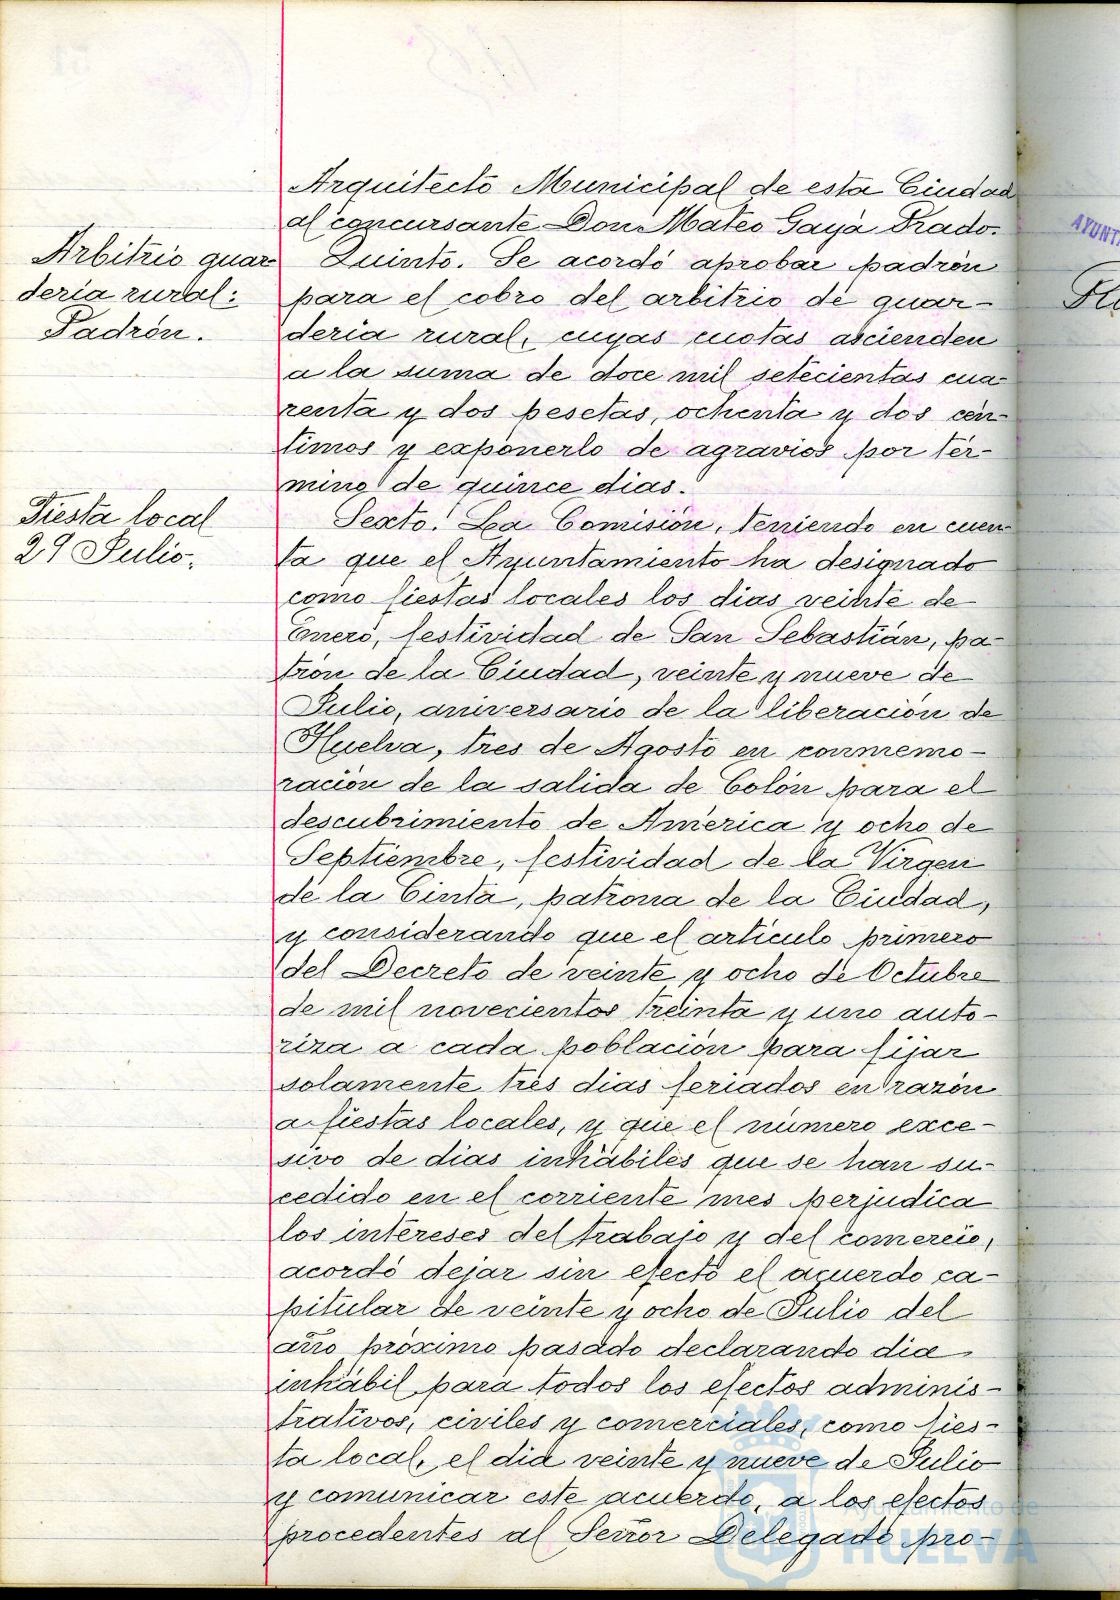 Arquitecto Municipal de esta Ciudad
al concursante Don Mateo Gayá Prado.
Arbitrio guar
deria rural:
Padrón.
Quinto. Se acordó aprobar padrón
para el cobro del arbitrio de guar-
deria rural, cuyas cuotas ascienden
a la suma de doce mil setecientas cua-
renta y dos pesetas, ochenta y dos cén-
timos y exponerlo de agravios por tér-
mino de quince dias.
Fiesta local
29 Julio.
Sexto. La Comisión, teniendo en cuen-
ta que el Ayuntamiento ha designado
como fiestas locales los dias veinte de
Enero, festividad de San Sebastián, pa-
trón de la Ciudad, veinte y nueve de
Julio, aniversario de la liberación de
Huelva, tres de Agosto en conmemo-
ración de la salida de Colón para el
descubrimiento de América y ocho de
Septiembre, festividad de la Virgen
de la Cinta, patrona de la Ciudad,
y considerando que el articulo primero
del Decreto de veinte y ocho de Octubre
de mil novecientos treinta y uno auto-
riza a cada población para fijar
solamente tres dias feriados en razón
a fiestas locales, y que el número exce-
sivo de dias inhábiles que se han su-
cedido en el corriente mes perjudica
los intereses del trabajo y del comercio,
acordó dejar sin efecto el acuerdo ca-
pitular de veinte y ocho de Julio del
año próximo pasado declarando dia
inhábil para todos los efectos adminis-
trativos, civiles y comerciales, como fies-
ta local, el dia veinte y nueve de Julio
y comunicar este acuerdo, a los efectos
procedentes al Señor Delegado pro-
AYUNTA
Ayuntamiento de
HUELVA